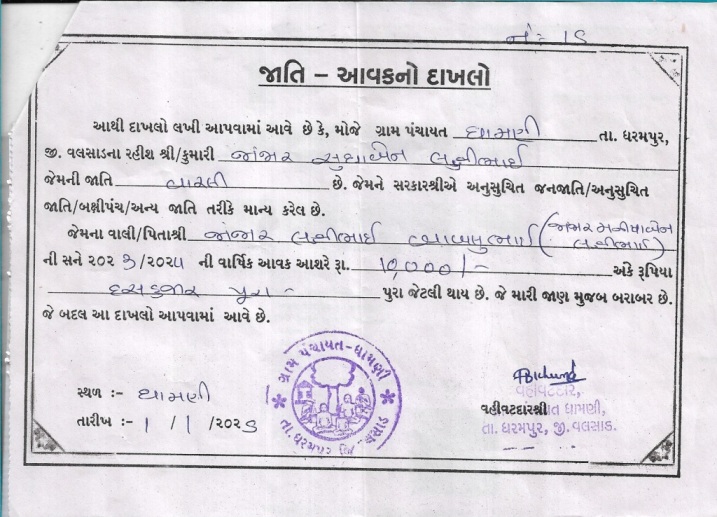 નં:- 15
જાતિ – આવકનો દાખલો
આથી દાખલો લખી આપવામાં આવે છે કે, મોજે ગ્રામ પંચાયત ધામણી તા. ધરમપુર,
જી. વલસાડના રહીશ શ્રી/કુમારી જાંજર સુધાબેન લક્ષીભાઈ
જેમની જાતિ વારલી છે. જેમને સરકારશ્રીએ અનુસુચિત જનજાતિ/અનુસુચિત
જાતિ/બક્ષીપંચ/અન્ય જાતિ તરીકે માન્ય કરેલ છે.
જેમના વાલી/પિતાશ્રી જાંજર લક્ષીભાઈ (જાંજર મનીષાબેન
લક્ષીભાઈ)
ની સને ૨૦૨ /૨૦૨ ની વાર્ષિક આવક આશરે રૂા. 10,000/- અંકે રૂપિયા
દસ હજાર પુરા - પુરા જેટલી થાય છે. જે મારી જાણ મુજબ બરાબર છે.
જે બદલ આ દાખલો આપવામાં આવે છે.
ગ્રામ પંચાયત-ધામણી
તા. ધરમપુર જિ. વલસાડ
સ્થળ :- ધામણી
તારીખ :- 1 / 1 /૨૦૨
વહીવટદાર,
વહીવટદારશ્રી
ધામણી,
તા. ધરમપુર, જી. વલસાડ.